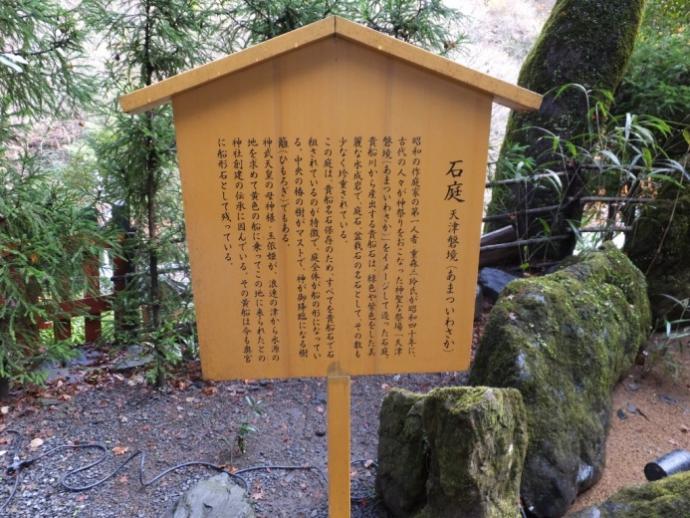 石庭 天津磐境（あまついわさか）
昭和の作庭家の第一人者 重森三玲氏が昭和四十年に、
古代の人々が神祭りをおこなった神聖な祭場「天津
磐境（あまついわさか）」をイメージして造った石庭。
貴船川から産出する貴船石は、緑色や紫色をした美
麗な水成岩で、庭石・盆栽石の名石として、その数も
少なく珍重されている。
この庭は、貴船名石保存のため、すべてを貴船石で石
組されているのが特徴で、庭全体が船の形になってい
る。中央の椿の樹がマストで、神が御降臨になる樹
籬（ひもろぎ）でもある。
神武天皇の母神様・玉依姫が、浪速の津から水源の
地を求めて黄色の船に乗ってこの地に来られたとの
神社創建の伝承に因んでいる。その黄船は今も奥宮
に船形石として残っている。